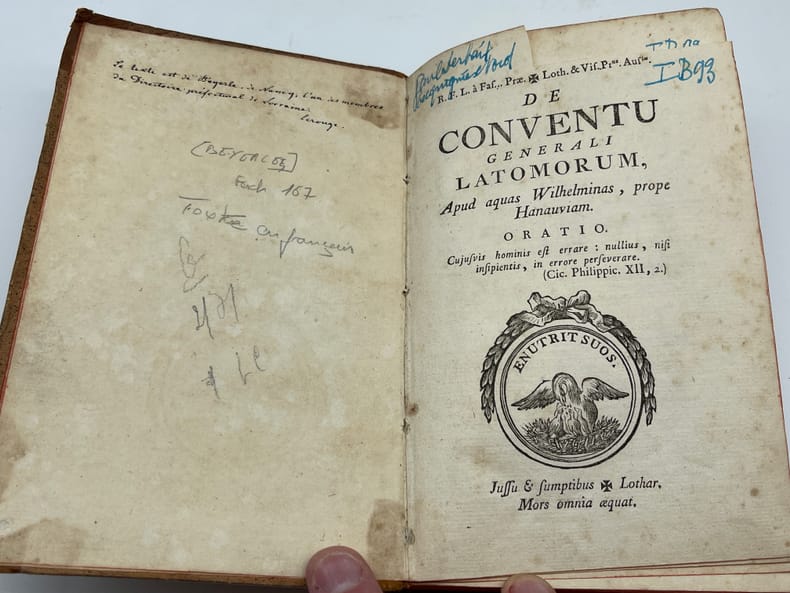 Le texte est de Beyerlé, à Nancy, l'un des membres
du Directoire préfectural de Lorraine.
Lerouge.
[BEYERLÉ]
Fesch 167
Texte en français
R. F. L. à Fas... Præ. ✠ Loth. & Vis. Pus. Ausiæ.
I B93
DE
CONVENTU
GENERALI
LATOMORUM,
Apud aquas Wilhelminas, prope
Hanauviam.
ORATIO.
Cujusvis hominis est errare : nullius, nisi
insipientis, in errore perseverare.
(Cic. Philippic. XII, 2.)
ENUTRIT SUOS.
Jussu & sumptibus ✠ Lothar.
Mors omnia æquat.